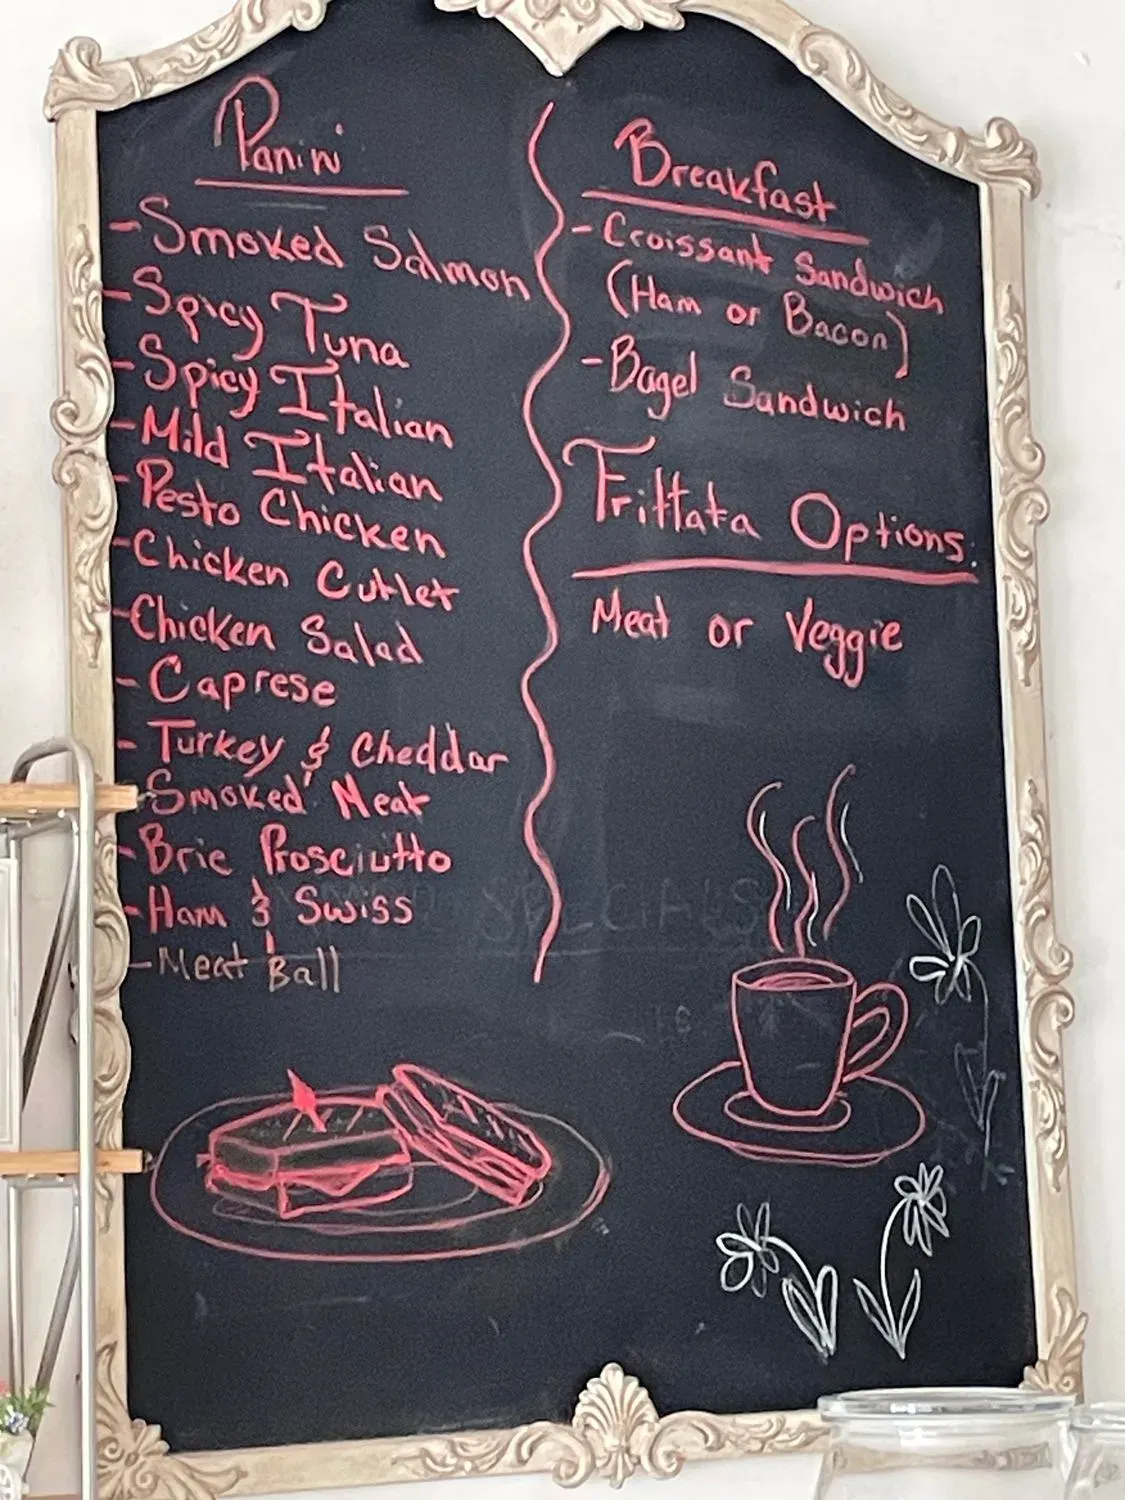 Panini
-Smoked Salmon
-Spicy Tuna
-Spicy Italian
-Mild Italian
-Pesto Chicken
-Chicken Cutlet
-Chicken Salad
-Caprese
-Turkey & Cheddar
-Smoked Meat
-Brie Prosciutto
-Ham & Swiss
-Meat Ball
Breakfast
-Croissant Sandwich
(Ham or Bacon)
-Bagel Sandwich
Frittata Options:
Meat or Veggie
SPECIALS